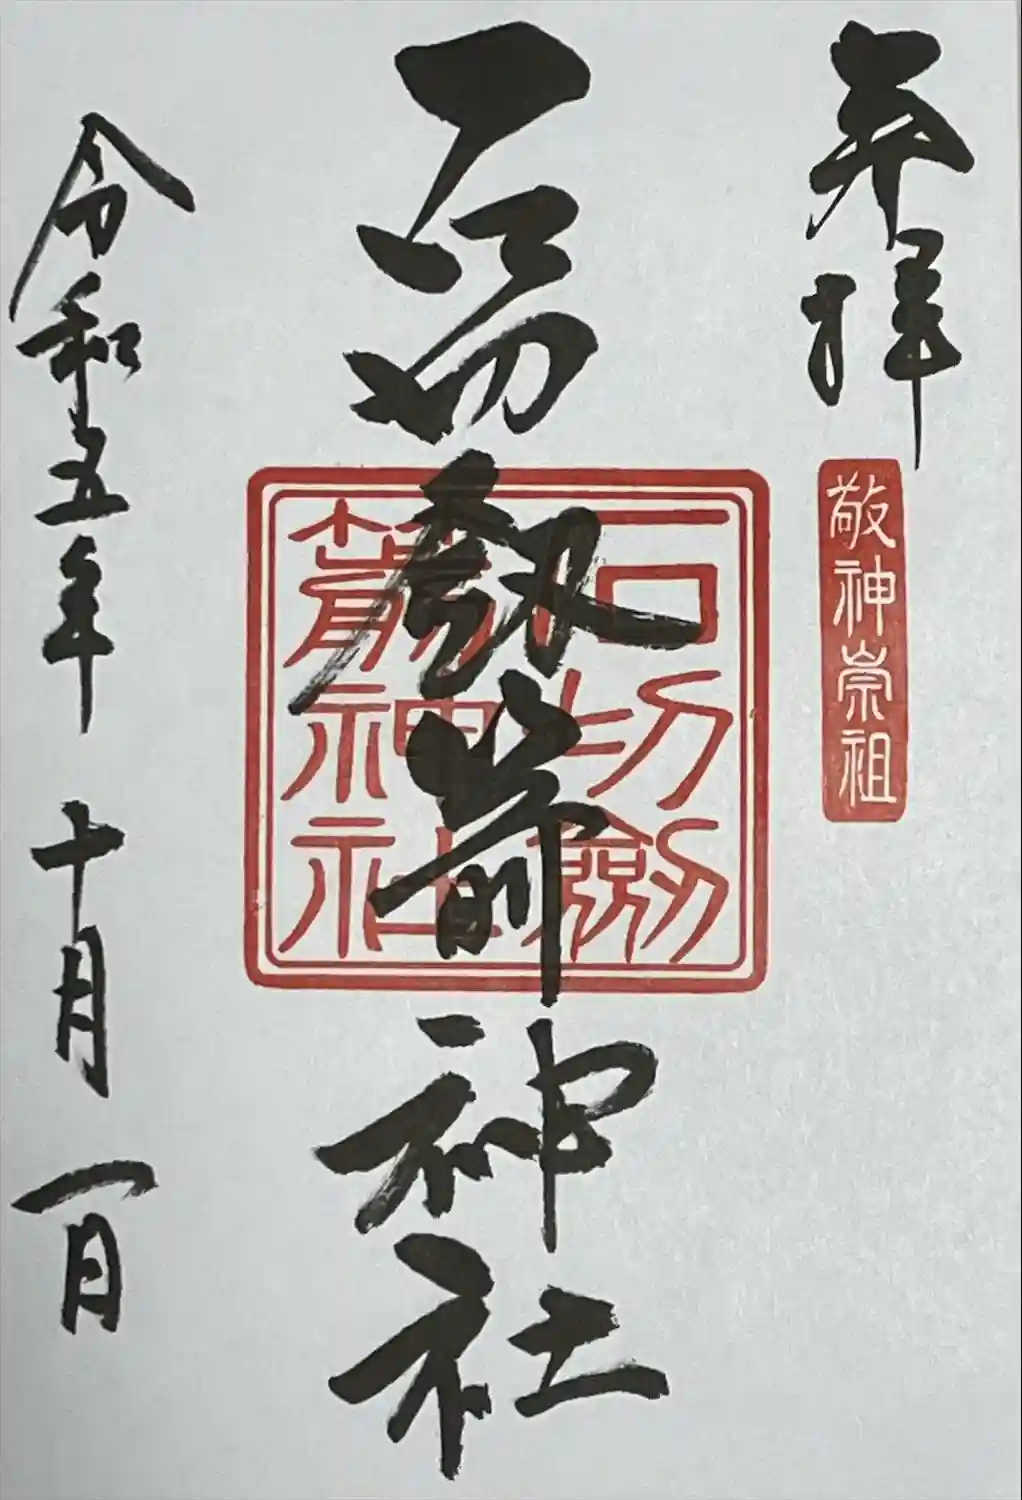 奉拝
敬神崇祖
石切劔箭神社
石切劔
箭神社
令和五年 十月 一日